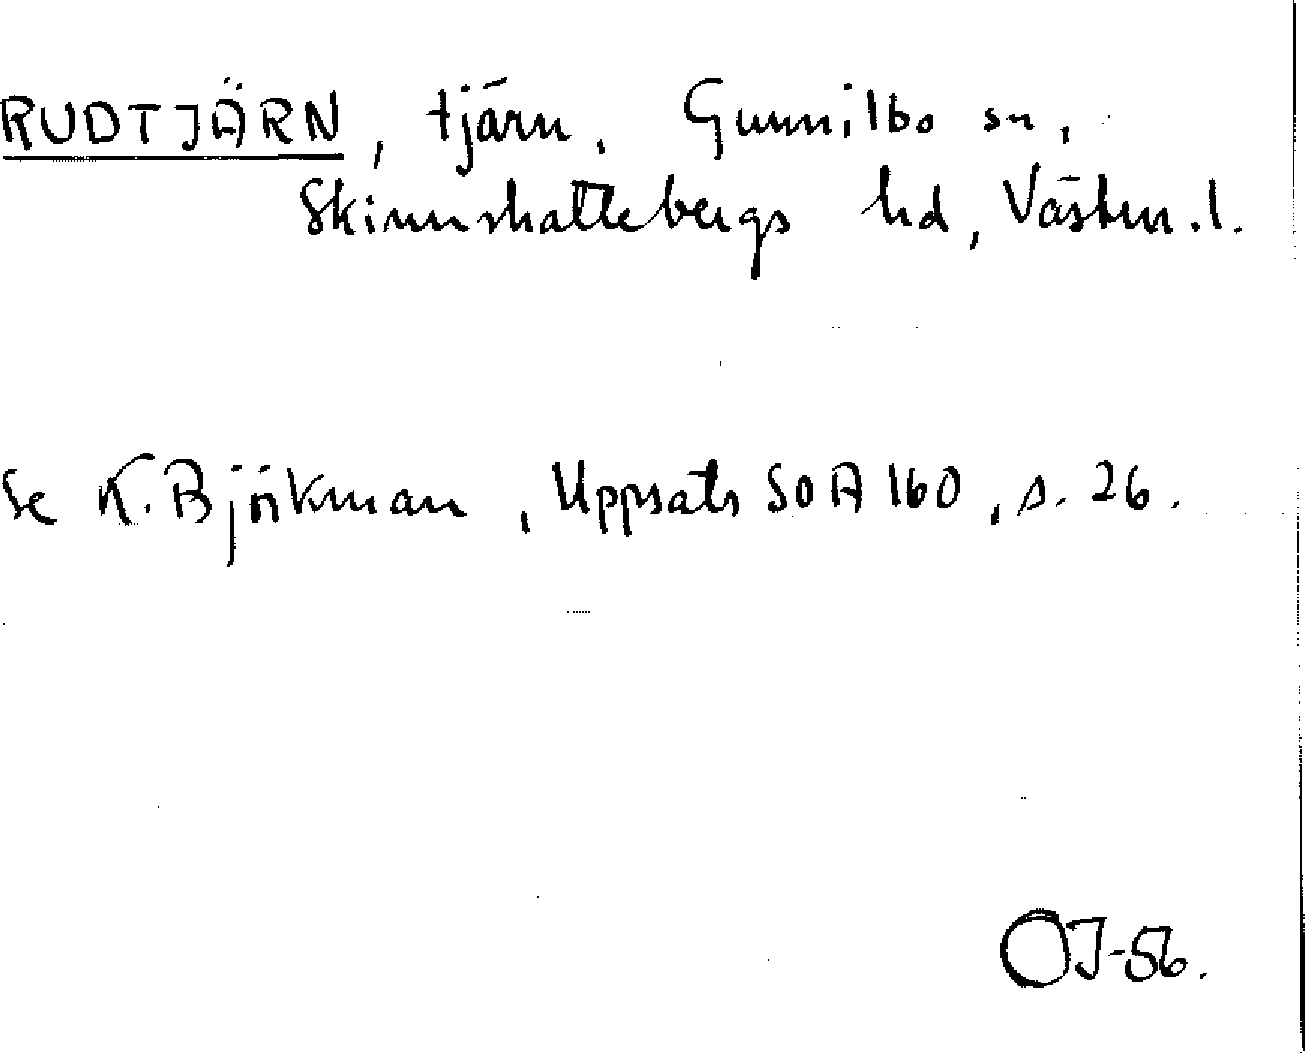 RUDTJÄRN, tjärn, Gunnilbo sn,
Skinnskattebergs hd, Västm.l.
Se K. Björkman, Uppsats SOA 160, s. 26.
OJ-56.